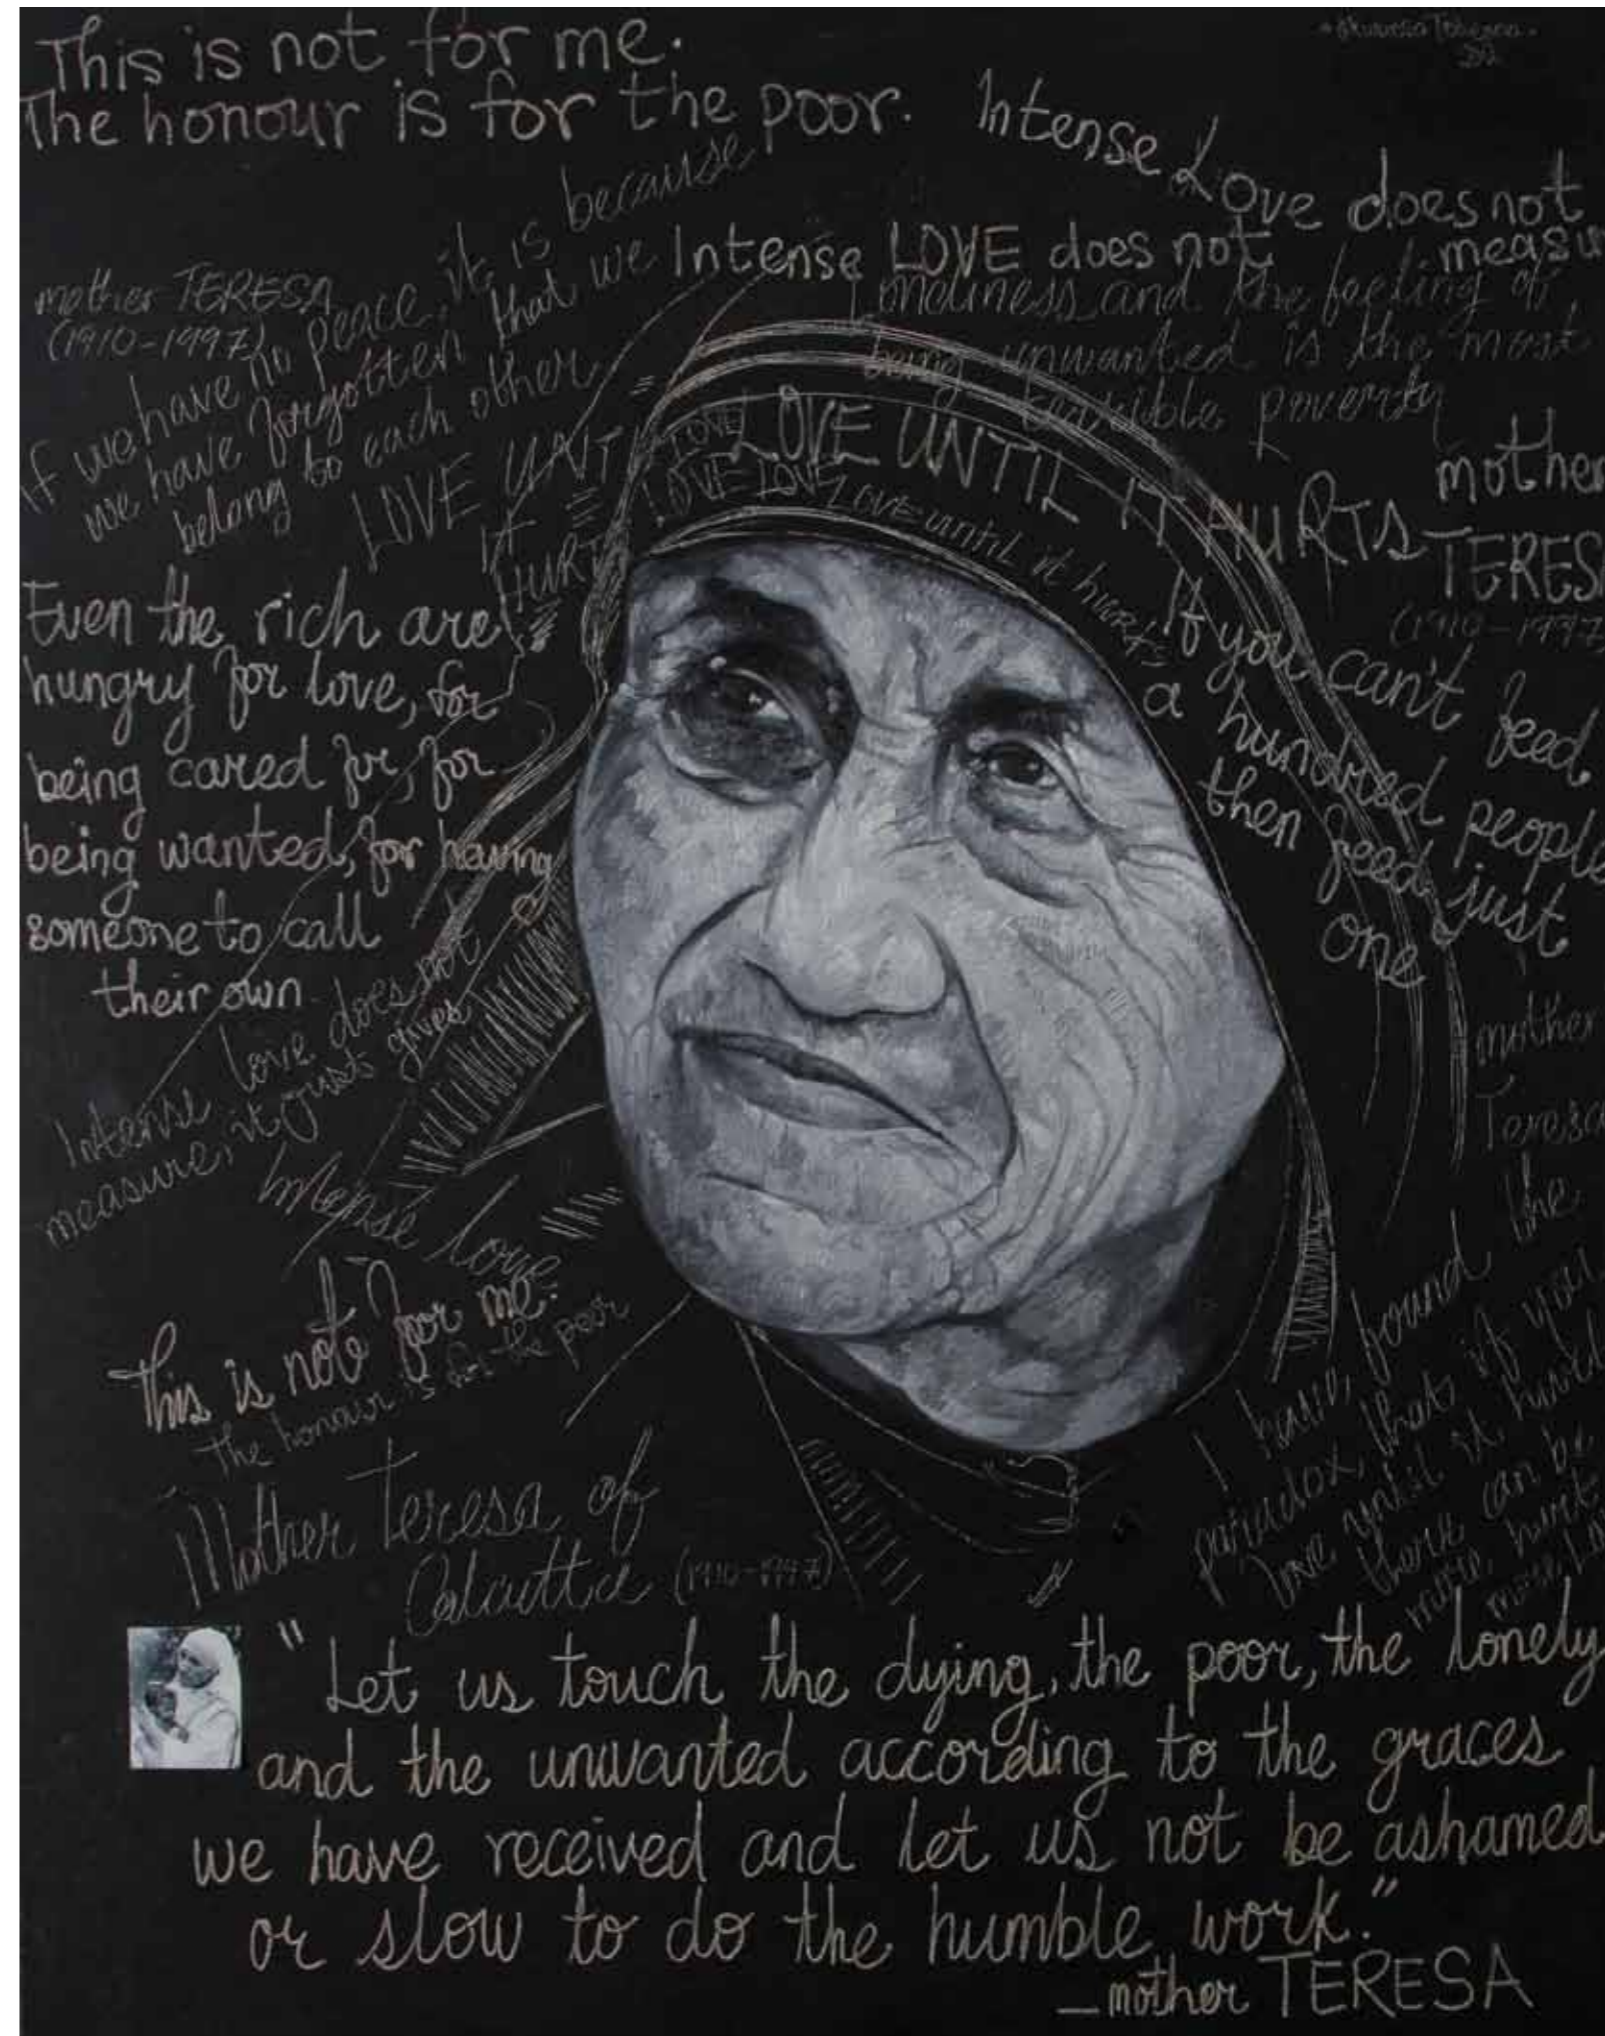 This is not for me.
The honour is for the poor.
Intense Love does not
measu
Intense LOVE does not
mother TERESA
(1910-1997)
If we have no peace, it is because
we have forgotten that we
belong to each other
loneliness and the feeling of
being unwanted is the most
terrible poverty
LOVE UNTIL
IT
HURTS
LOVE
LOVE UNTIL IT HURTS
LOVE LOVE LOVE until it hurts
mother
TERESA
(1910-1997
Even the rich are
hungry for love, for
being cared for, for
being wanted, for having
someone to call
their own
If you can't feed
a hundred people
then feed just
one
mother
Teresa
Intense love does not
measure, it justs gives
Intense love
This is not for me.
The honour is for the poor
Mother Teresa of
Calcutta (1910-1997)
I have found the
paradox, that if you
love until it hurts
there can be
more hurt
more
"Let us touch the dying, the poor, the lonely
and the unwanted according to the graces
we have received and let us not be ashamed
or slow to do the humble work."
_mother TERESA